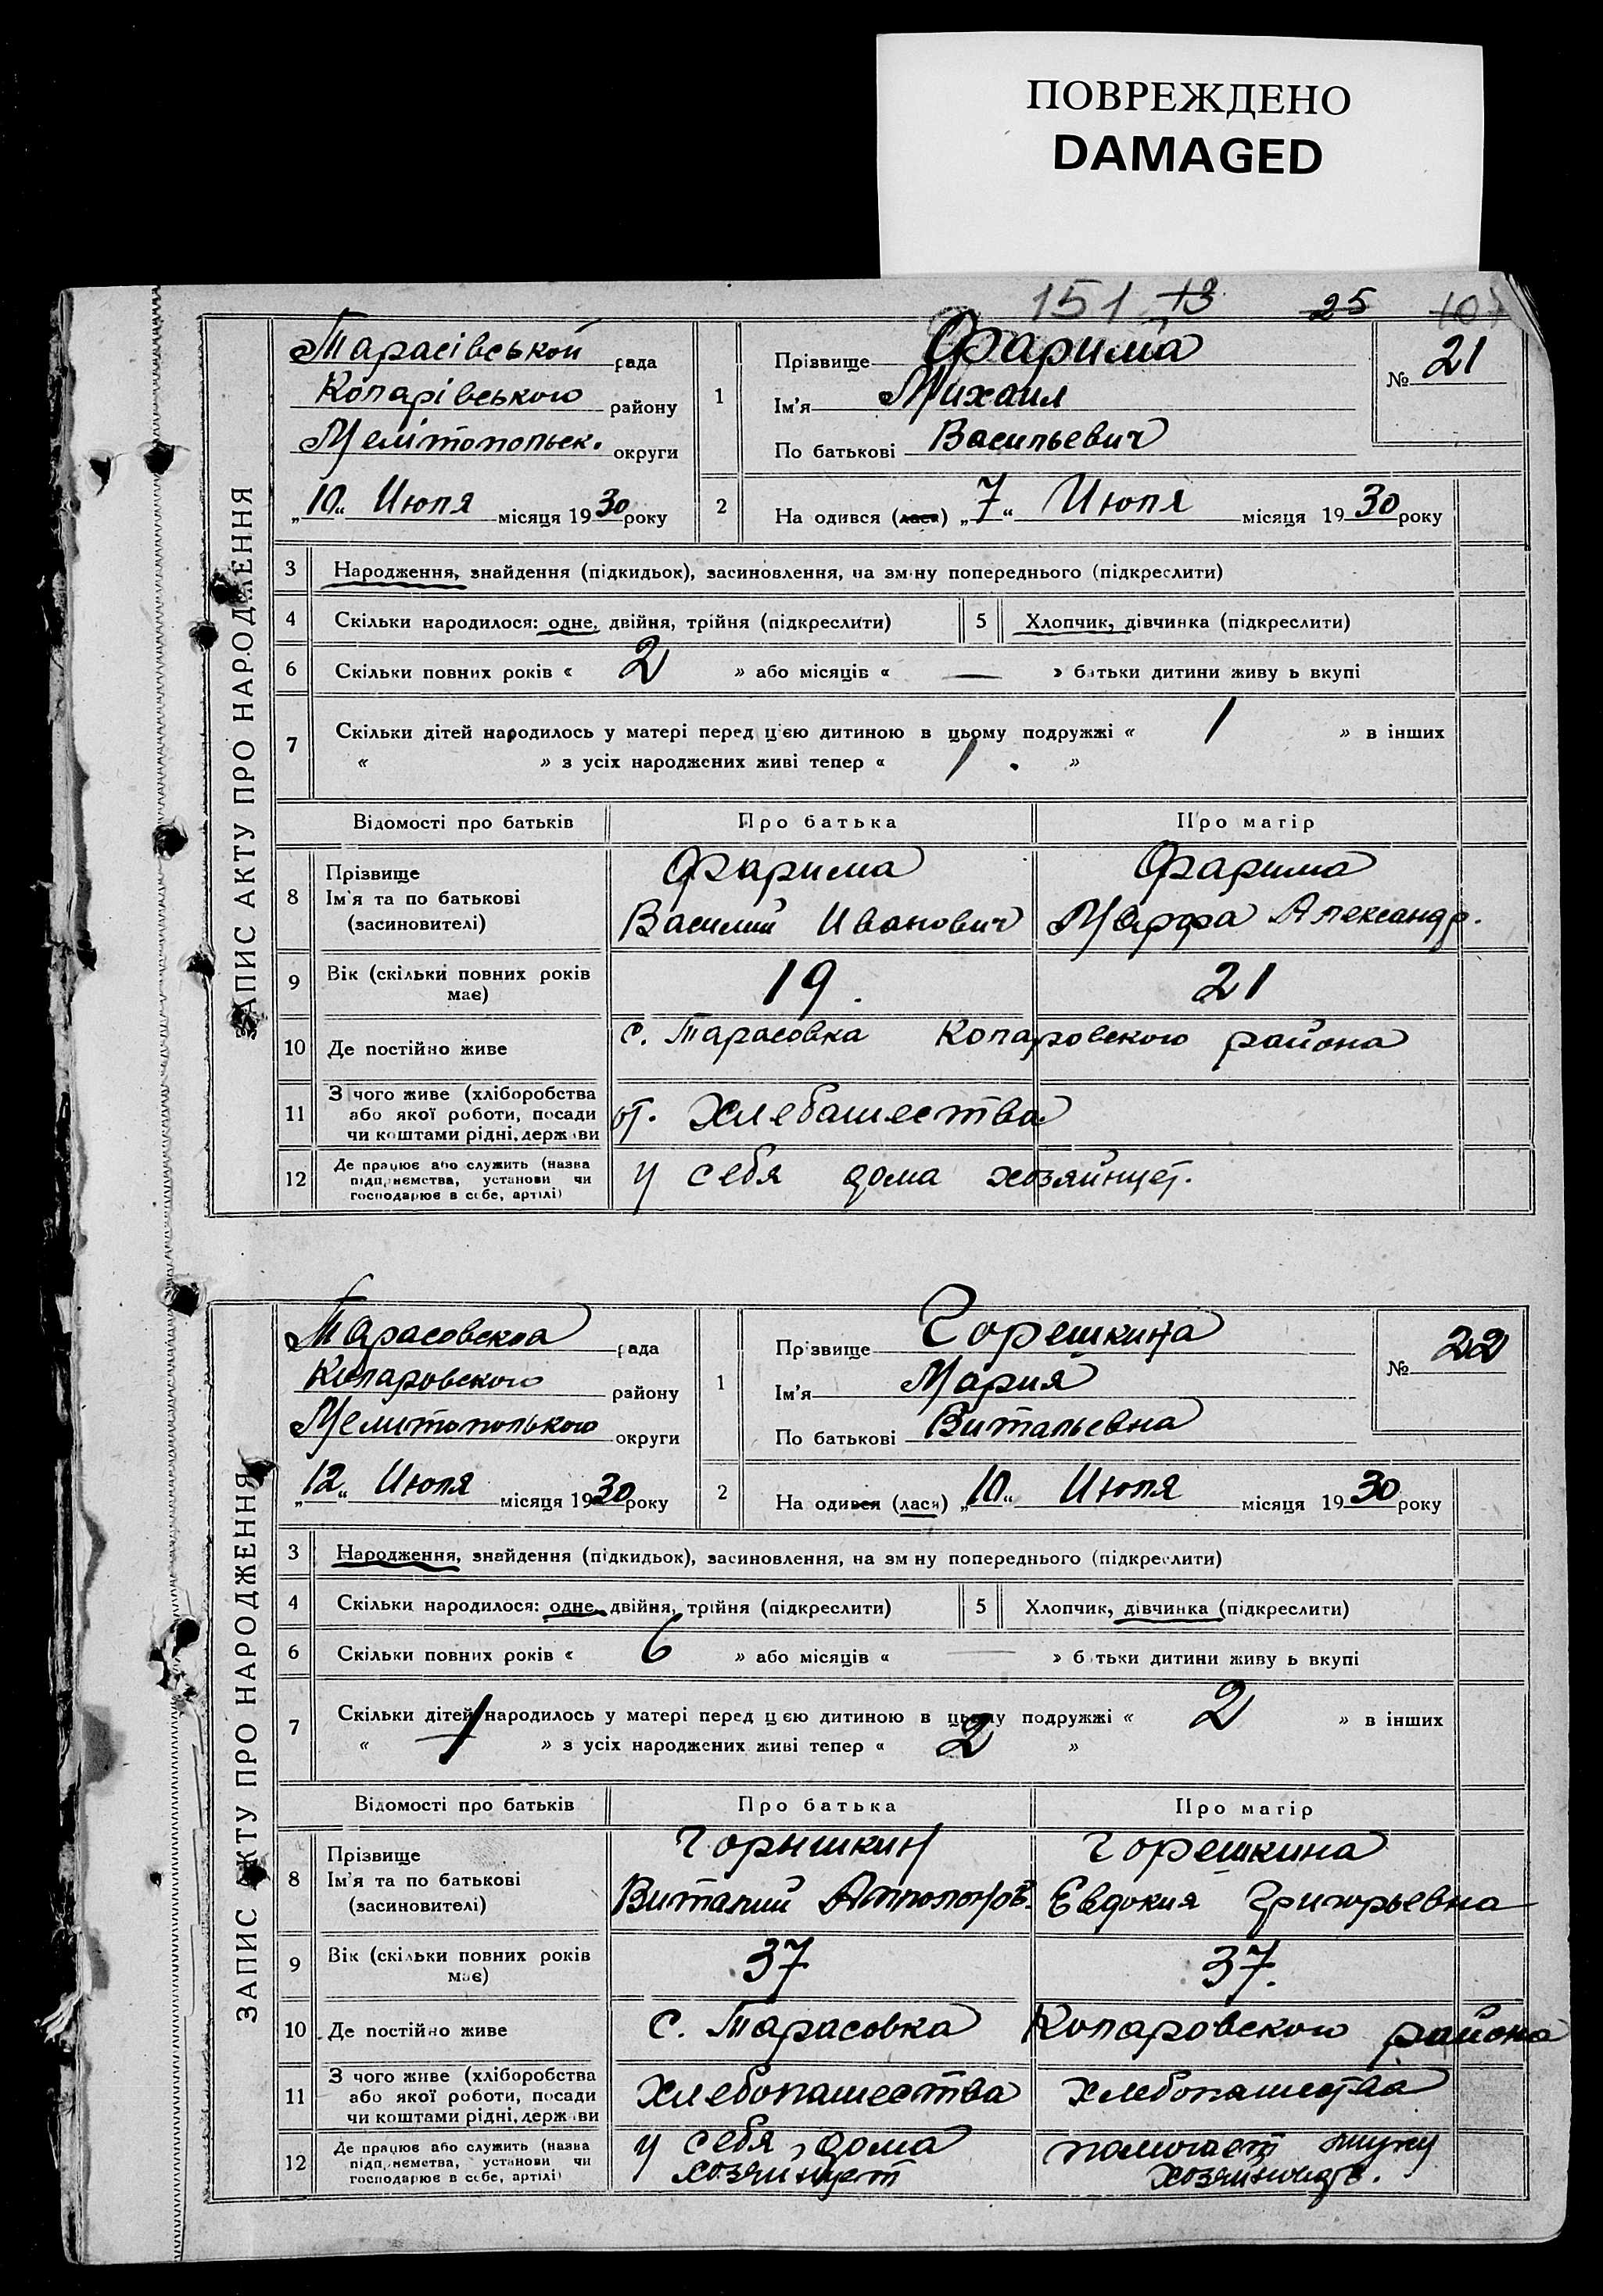 ПОВРЕЖДЕНО
DAMAGED
151 13 25
ЗАПИС АКТУ ПРО НАРОДЖЕННЯ
Тарасівськой рада
Копарівського району
Мелітопольск. округи
„10“ Июля місяця 1930 року
1
Прізвище Фарима
Ім'я Михаил
По батькові Васильевич
№ 21
2 На одився (лася) „7“ Июля місяця 1930 року
3 Народження, знайдення (підкидьок), засиновлення, на зм ну попереднього (підкреслити)
4 Скільки народилося: одне, двійня, трійня (підкреслити) 5 Хлопчик, дівчинка (підкреслити)
6 Скільки повних років « 2 » або місяців « — » батьки дитини живу ь вкупі
7 Скільки дітей народилось у матері перед цією дитиною в цьому подружжі « 1 » в інших
« » з усіх народжених живі тепер « 1 . »
Відомості про батьків Про батька Про матір
8 Прізвище Фарима Фарима
Ім'я та по батькові Василий Иванович Марфа Александр.
(засиновителі)
9 Вік (скільки повних років має) 19. 21
10 Де постійно живе с. Тарасовка Копаровского района
11 З чого живе (хліборобства
або якої роботи, посади от. Хлебашества
чи коштами рідні, держ ви
12 Де працює або служить (назва
підпр ємства, установи чи у себя дома хозяйнует.
господарює в себе, артілі)
ЗАПИС АКТУ ПРО НАРОДЖЕННЯ
Тарасовская рада
Копаровского району
Мелитополького округи
„12“ Июля місяця 1930 року
1
Пр звище Горешкина
Ім'я Мария
По батькові Витальевна
№ 22
2 На одився (лася) „10“ Июля місяця 1930 року
3 Народження, знайдення (підкидьок), засиновлення, на зм ну попереднього (підкреслити)
4 Скільки народилося: одне, двійня, трійня (підкреслити) 5 Хлопчик, дівчинка (підкреслити)
6 Скільки повних років « 6 » або місяців « — » б тьки дитини живу ь вкупі
7 Скільки дітей народилось у матері перед ц єю дитиною в цьому подружжі « 2 » в інших
« 1 » з усіх народжених живі тепер « 2 »
Відомості про батьків Про батька Про матір
8 Прізвище Горышкин Горешкина
Ім'я та по батькові Виталий Евдокия Григорьевна
(засиновителі)
9 Вік (скільки повних років має) 37 37.
10 Де постійно живе с. Тарасовка Копаровского района
11 З чого живе (хліборобства
або якої роботи, посади Хлебопашества Хлебопашества
чи коштами рідні, держ ви
12 Де працює або служить (назва у себя дома помогает мужу
підпр ємства, установи чи хозяйнует
господарює в себе, артілі)